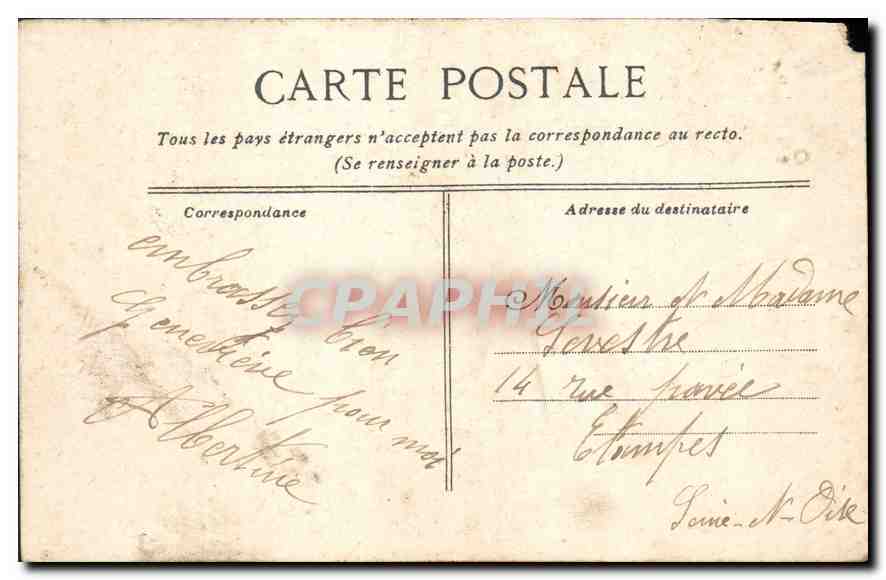 CARTE POSTALE
Tous les pays étrangers n'acceptent pas la correspondance au recto.
(Se renseigner à la poste.)
Correspondance
embrassez bien
Geneviève pour moi
Albertine
Adresse du destinataire
Monsieur et Madame
Sevestre
14 rue pavée
Etampes
Seine-et-Oise
CPAPHIL